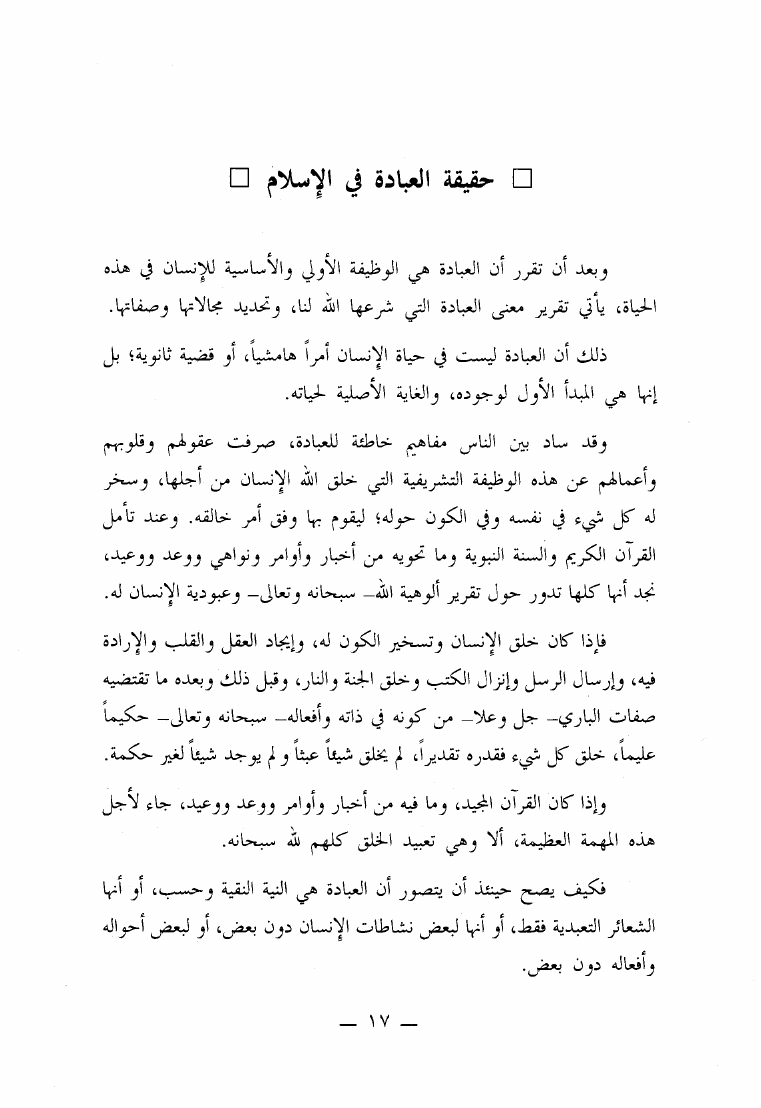 □ حقيقة العبادة في الإسلام □
وبعد أن تقرر أن العبادة هي الوظيفة الأولي والأساسية للإنسان في هذه
الحياة، يأتي تقرير معنى العبادة التي شرعها الله لنا، وتحديد مجالاتها وصفاتها.
ذلك أن العبادة ليست في حياة الإنسان أمراً هامشياً، أو قضية ثانوية؛ بل
إنها هي المبدأ الأول لوجوده، والغاية الأصلية لحياته.
وقد ساد بين الناس مفاهيم خاطئة للعبادة، صرفت عقولهم وقلوبهم
وأعمالهم عن هذه الوظيفة التشريفية التي خلق الله الإنسان من أجلها، وسخر
له كل شيء في نفسه وفي الكون حوله؛ ليقوم بها وفق أمر خالقه. وعند تأمل
القرآن الكريم والسنة النبوية وما تحويه من أخبار وأوامر ونواهي ووعد ووعيد،
نجد أنها كلها تدور حول تقرير ألوهية الله– سبحانه وتعالى– وعبودية الإنسان له.
فإذا كان خلق الإنسان وتسخير الكون له، وإيجاد العقل والقلب والإرادة
فيه، وإرسال الرسل وإنزال الكتب وخلق الجنة والنار، وقبل ذلك وبعده ما تقتضيه
صفات الباري– جل وعلا– من كونه في ذاته وأفعاله– سبحانه وتعالى– حكيماً
عليماً، خلق كل شيء فقدره تقديراً، لم يخلق شيئاً عبثاً و لم يوجد شيئاً لغير حكمة.
وإذا كان القرآن المجيد، وما فيه من أخبار وأوامر ووعد ووعيد، جاء لأجل
هذه المهمة العظيمة، ألا وهي تعبيد الخلق كلهم لله سبحانه.
فكيف يصح حينئذ أن يتصور أن العبادة هي النية النقية وحسب، أو أنها
الشعائر التعبدية فقط، أو أنها لبعض نشاطات الإنسان دون بعض، أو لبعض أحواله
وأفعاله دون بعض.
— ١٧ —